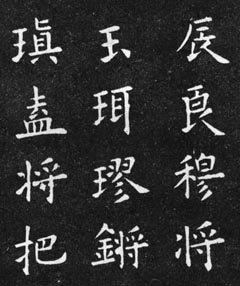 辰良穆将
玉珥璆鏘
瑱盍将把